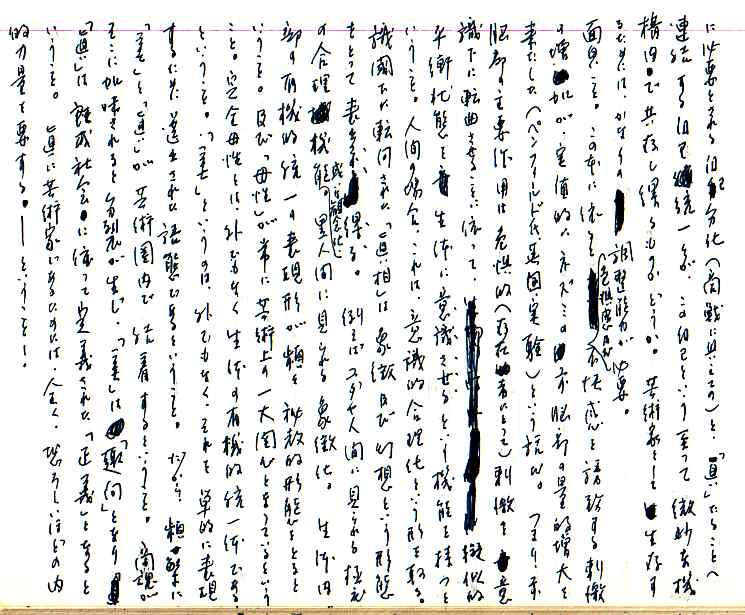 に必要とされる自配分化（商戦に具えての）と、「真」たることへ
連結する自己統一が、この自己という至って微妙な機
構内で共存し得るものかどうか。芸術家として生存す
るためには、かなりの調整能力が必要。
面見こと。この本に依ると、危惧感及び不快感を誘発する刺激
の増加が、実値的にネズミの前脳部の量的増大を
来たした（ペンフィールド氏 英国 実験）という話。つまり、前
脳部の主要作用は危惧的（存在者にとって）刺激を意
識下に転曲させることに依って、擬似的
平衡状態を生体に意識させるという機能を持つと
いうこと。人間の場合、これは、意識的合理化という形を取る。
識閾下に転向された「真相」は象徴及び幻想という形態
をとって表われ得る。例えばユダヤ人間に見られる極近
の合理機能。或は観念化 黒人間に見られる象徴化。生体内
部の有機的統一の表現形が頻々秘教的形態をとると
いうこと。及び「母性」が常に芸術上の一大関心となっているという
こと。完全母性とは外でもなく生体の有機的統一体である
ということ。「美」というのは、外でもなく、それを単的に表現
するために選出された語態であるということ。だから、頻繁に
「美」と「真」が芸術圏内で結着するということ。商魂が
そこに加味されると分裂が生じ、「美」は「趣向」となり
「真」は既成社会に依って定義された「正義」となると
いうこと。真に芸術家であるためには、全く、恐ろしいほどの内
的力量を要する。——ということ！。